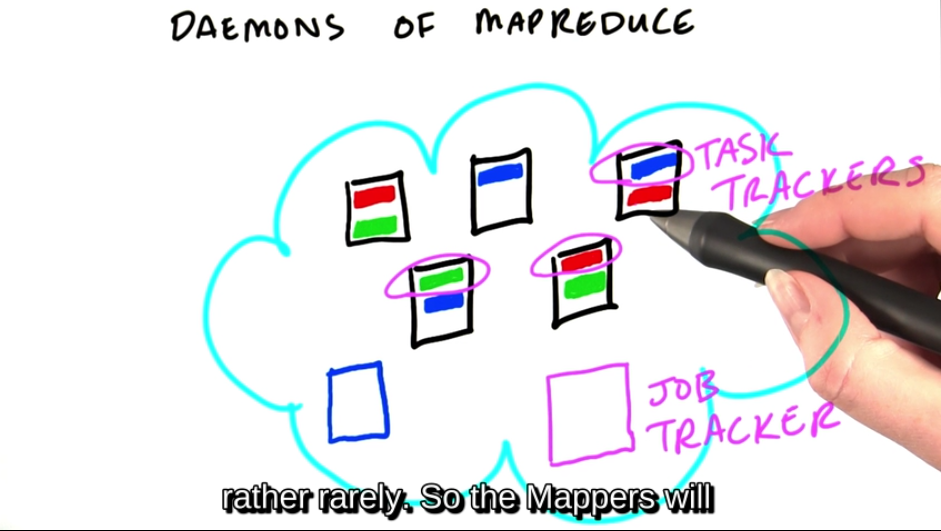 DAEMONS OF MAPREDUCE
TASK
TRACKERS
JOB
TRACKER
rather rarely. So the Mappers will